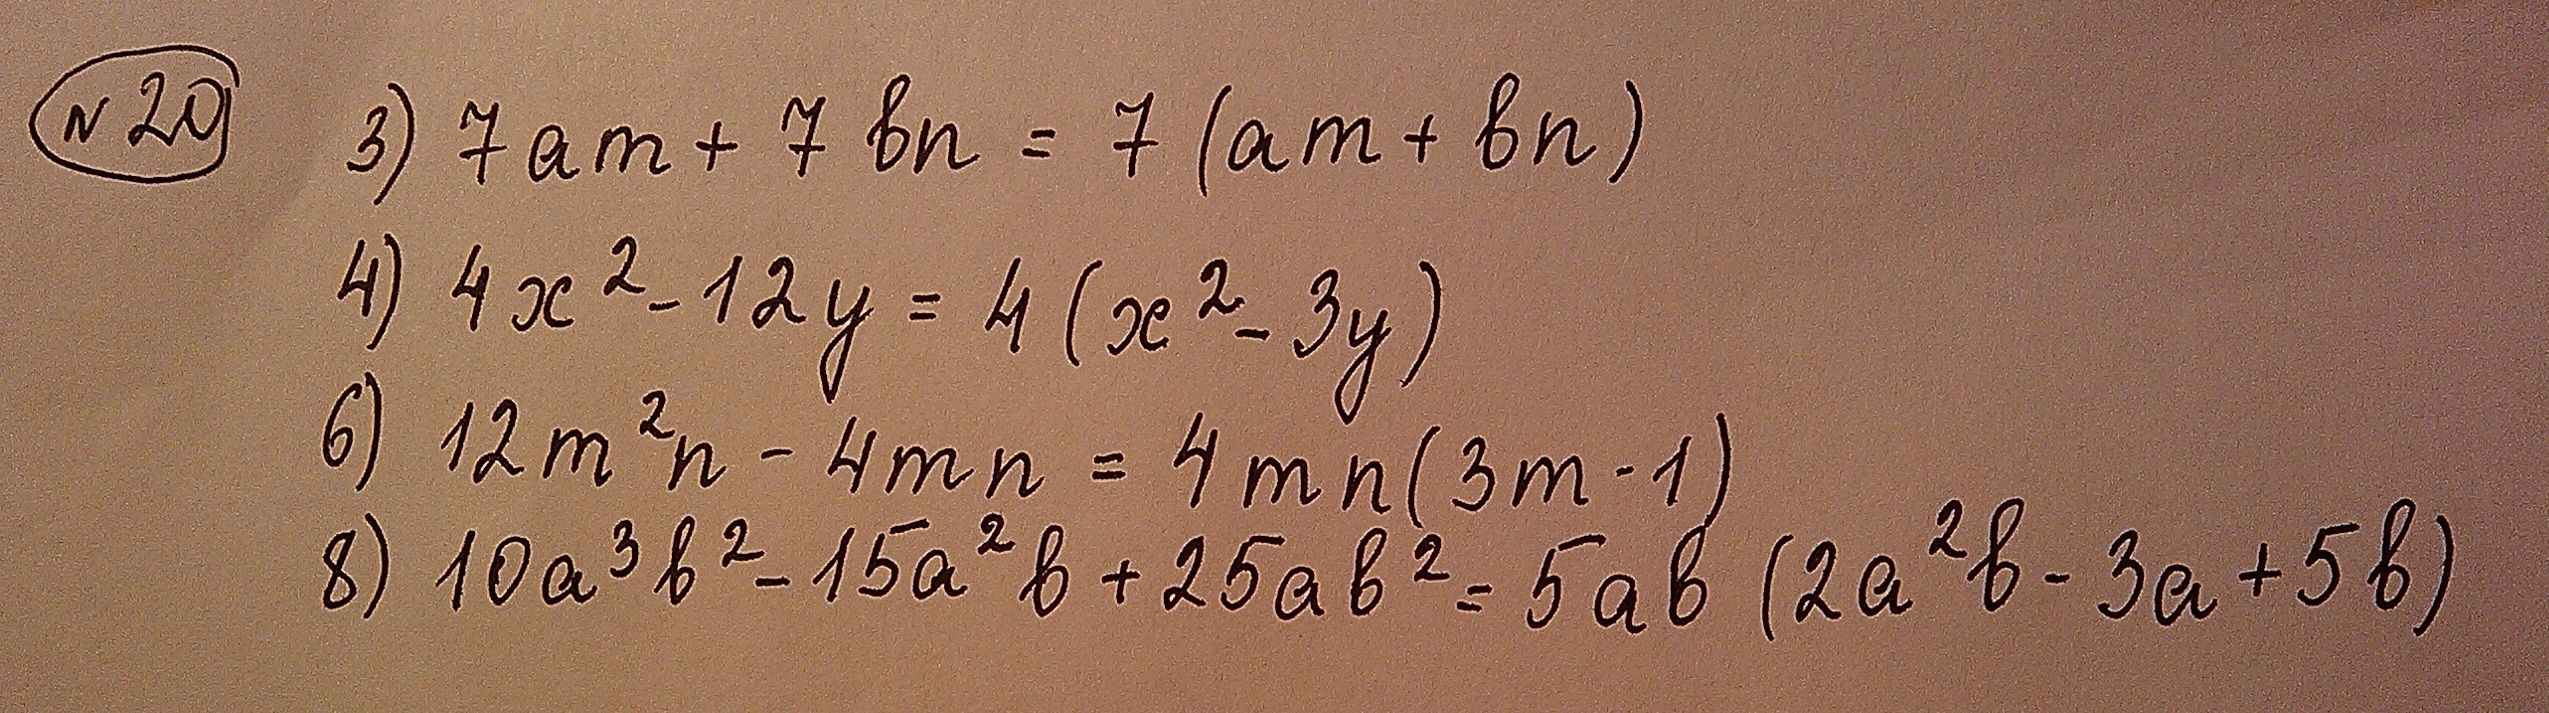 №20 3) 7am + 7bn = 7(am + bn)
4) 4x² - 12y = 4(x² - 3y)
6) 12m²n - 4mn = 4mn(3m - 1)
8) 10a³b² - 15a²b + 25ab² = 5ab(2a²b - 3a + 5b)